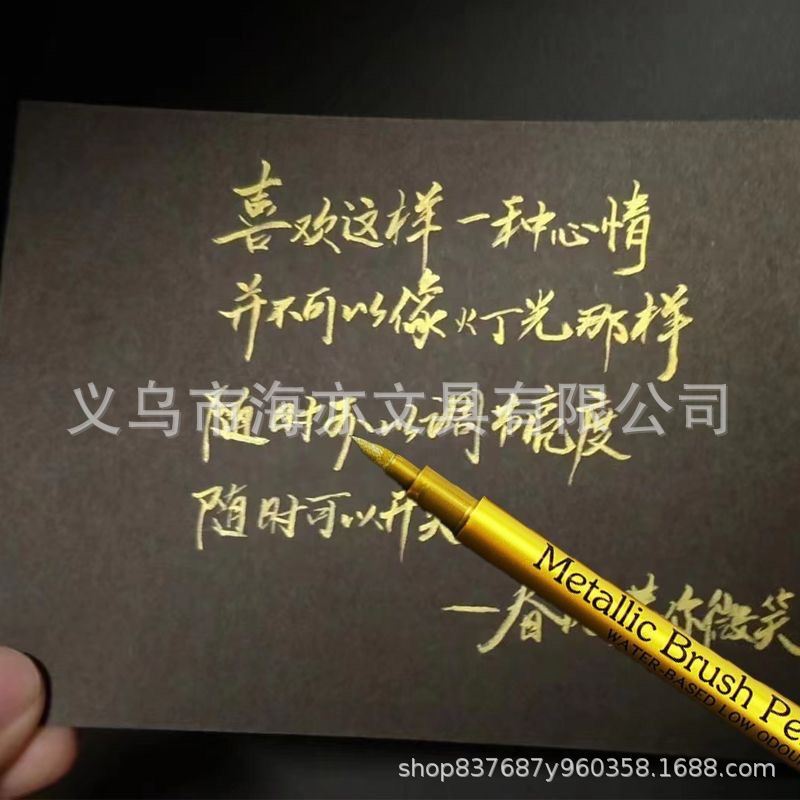 喜欢这样一种心情
并不可以像灯光那样
随时可以调节亮度
随时可以开关
一春风带你微笑
义乌市海亦文具有限公司
Metallic Brush Pe
WATER-BASED LOW ODOU
shop837687y960358.1688.com